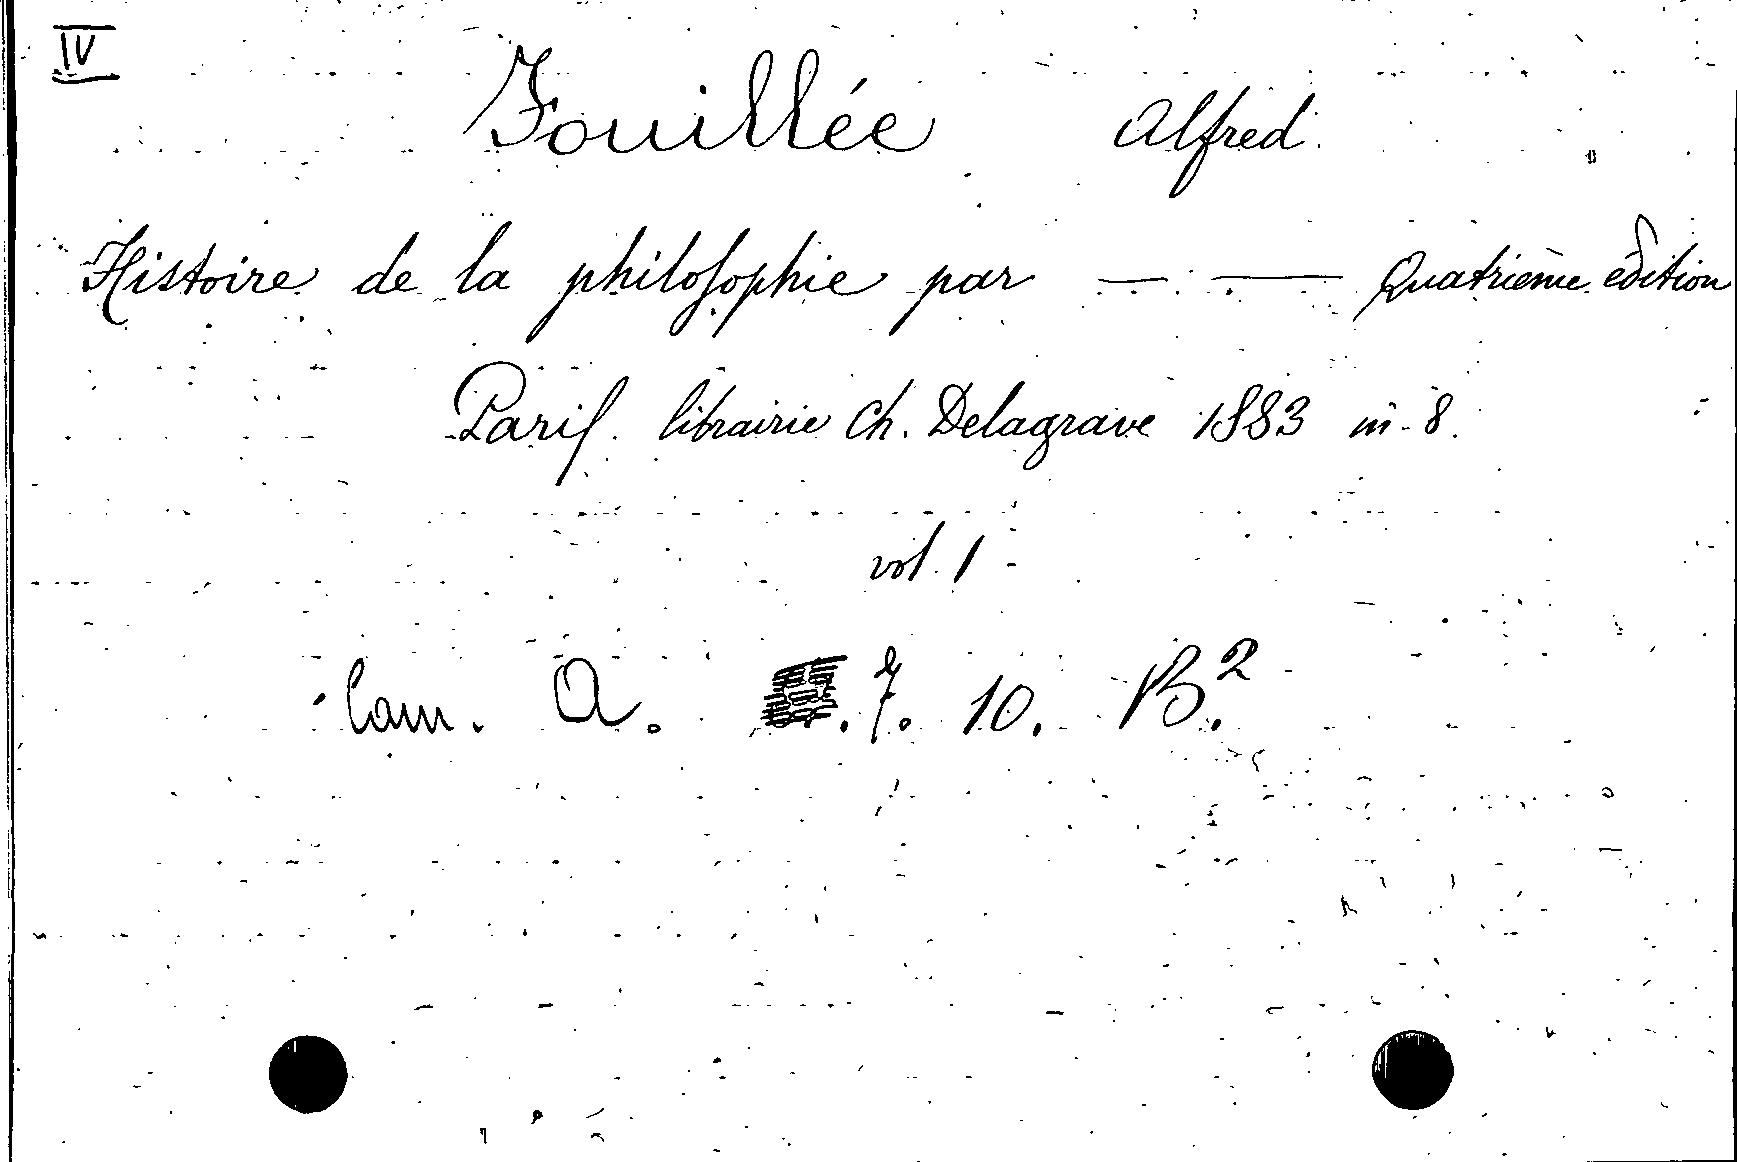 IV
Fouillée Alfred.
Histoire de la philosophie par — — Quatrième édition
Paris. librairie Ch. Delagrave 1883 in-8.
vol. 1
Cam. A. 7. 10. B.²